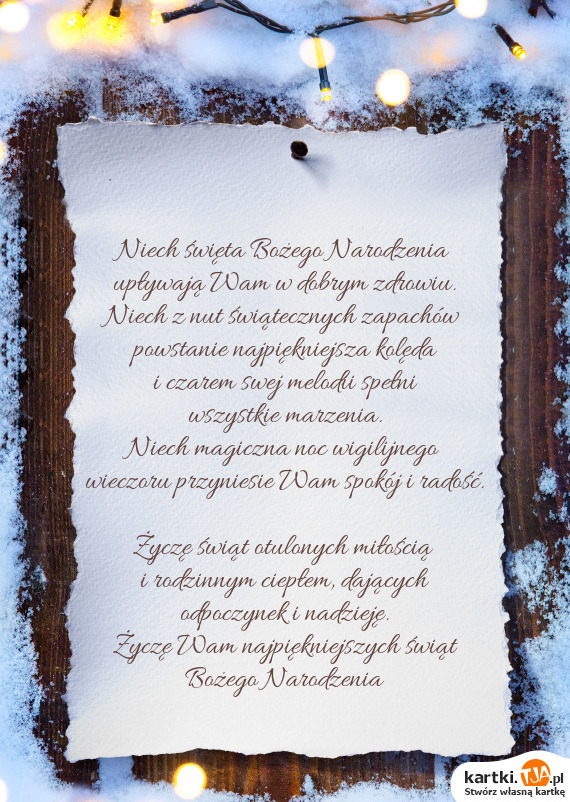 Niech święta Bożego Narodzenia
upływają Wam w dobrym zdrowiu.
Niech z nut świątecznych zapachów
powstanie najpiękniejsza kolęda
i czarem swej melodii spełni
wszystkie marzenia.
Niech magiczna noc wigilijnego
wieczoru przyniesie Wam spokój i radość.
Życzę świąt otulonych miłością
i rodzinnym ciepłem, dających
odpoczynek i nadzieję.
Życzę Wam najpiękniejszych świąt
Bożego Narodzenia
kartki.TJA.pl
Stwórz własną kartkę